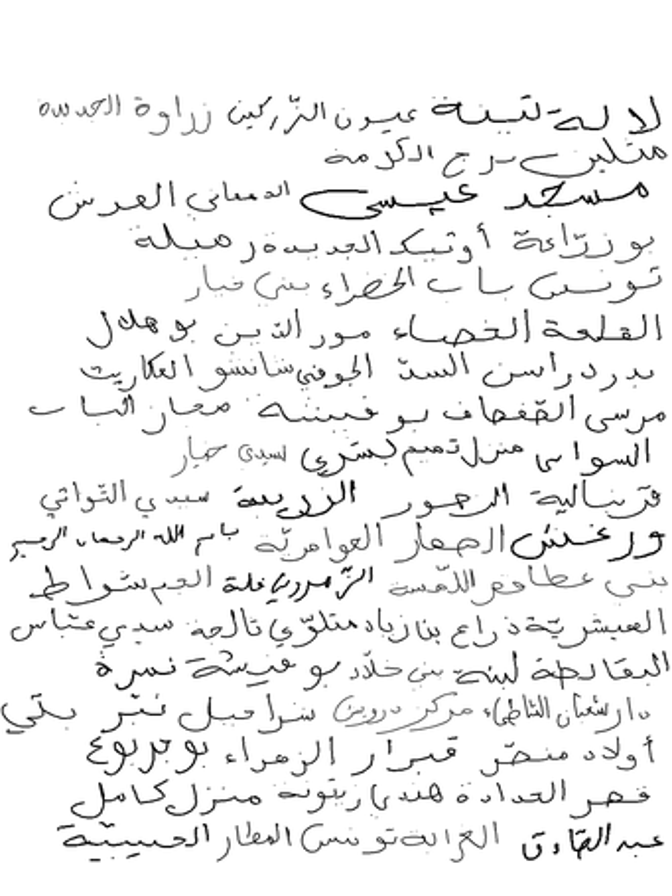 لالة تبينة عيون الزركين زراوة الجديدة
متلين برج الكرمة
مسجد عيسى الدهماني العرش
بوزراعة أوتيك الجديدة رميلة
تونس باب الخضراء بني خيار
القلعة الخصباء نور الدين بوهلال
بدر دراسن السد الجوفي شانشو العكاريت
مرسى القفصاف بوفيشة معاز الباب
السواسي منزل تميم كسرى سيدي خيار
قرنبالية الرحور الزريبة سيدي التواتي
ورغش الصمار العوامرية باسم الله الرحمان الرحيم
بني عطا اللمسة الزهروني قلة العم شواط
العيشرية ذراع بنازياد متلوي تالجة سيدي عباس
البقالطة لبنة بني خلاد بوعيشة نسرة
دار شعبان الشاطئ مركز دروين شراحيل نبر بلي
أولاد منصر قبرار الزهراء بوجربوع
قصر الحدادة هندي زيتونة منزل كامل
عبد الصادق الغرابة تونس المطار الحبيبية